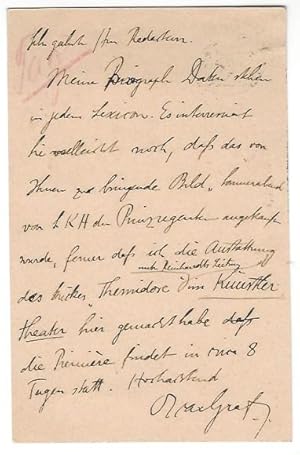 Sehr geehrter Herr Redakteur.
Meine Biograph Daten stehen
in jedem Lexicon. Es interessiert
Sie vielleicht noch, daß das von
Ihnen zu bringende Bild,
von S. KH dem Prinzregenten angekauft
wurde, ferner daß ich die Ausstattung
unter Reinhardts Leitung
des Stückes Themidore im Künstler
theater hier gemacht habe
die Première findet in etwa 8
Tagen statt. Hochachtend
Max Graf